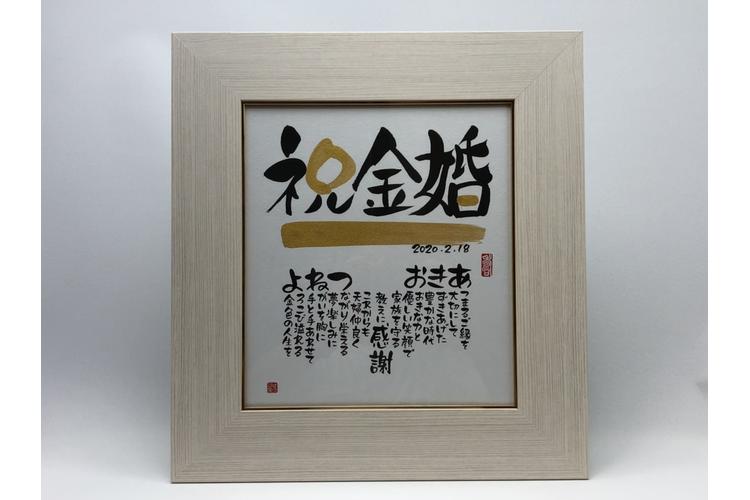 祝金婚
2020.2.18
あつまるご縁を
大切にして
きずきあげた
豊かな時代
おおきな力と
優しい笑顔で
家族を守る
教えに感謝
これからも
夫婦仲良く
つながり栄える
夢楽しみに
ねがいを胸に
手と手あわせて
よろこび溢れる
金色の人生を